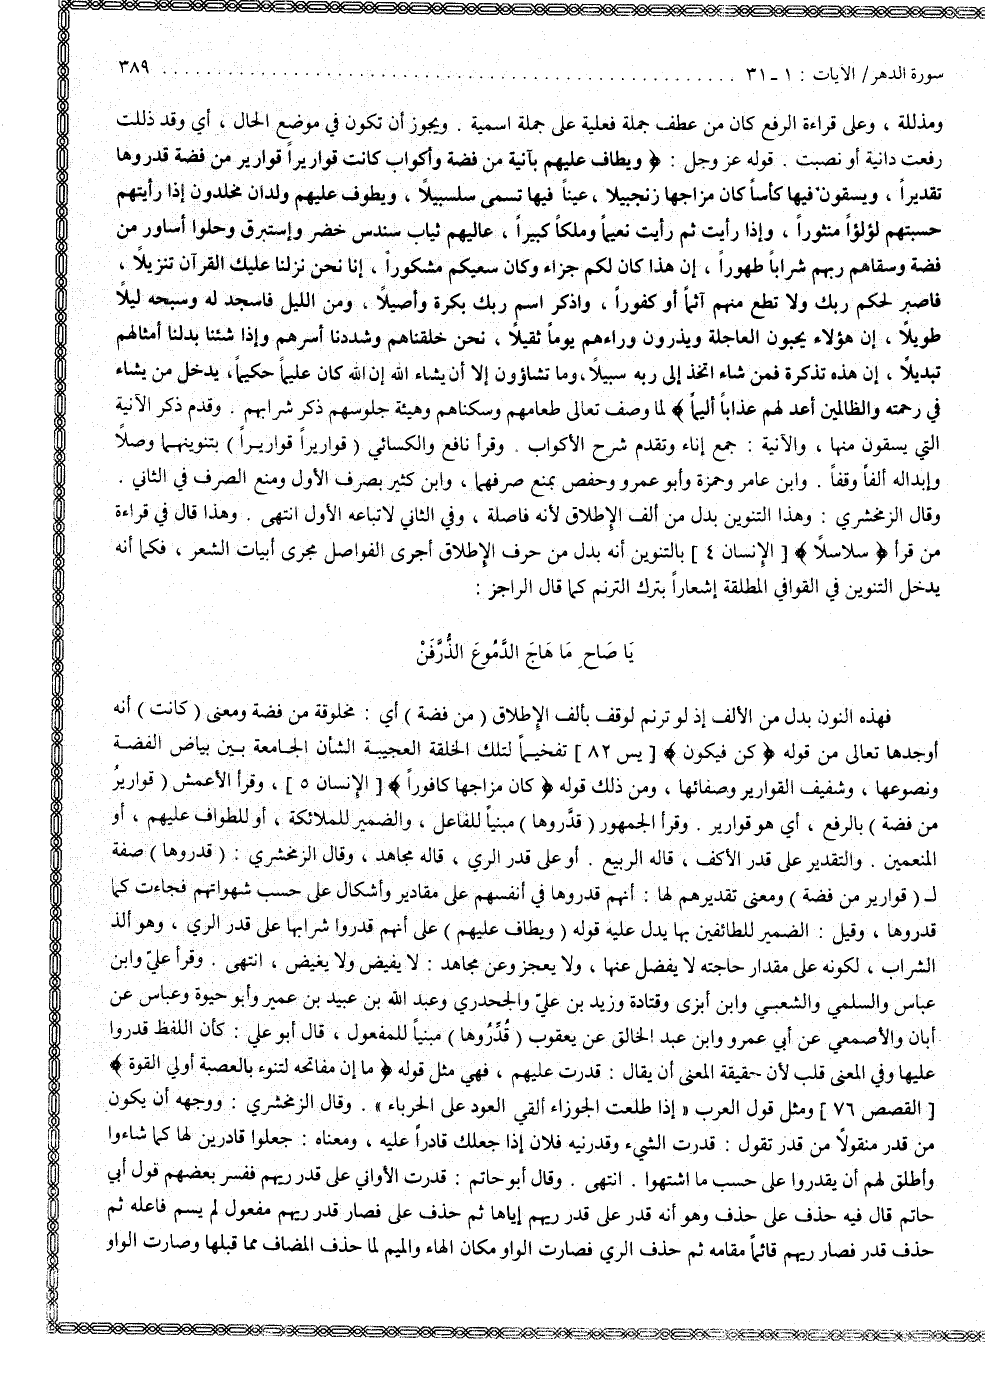 سورة الدهر/ الآيات : ١ ـ ٣١ ................................................ ٣٨٩
ومذللة ، وعلى قراءة الرفع كان من عطف جملة فعلية على جملة اسمية . ويجوز أن تكون في موضع الحال ، أي وقد ذللت
رفعت دانية أو نصبت . قوله عز وجل : ﴿ ويطاف عليهم بآنية من فضة وأكواب كانت قواريراً قوارير من فضة قدروها
تقديراً ، ويسقون فيها كأساً كان مزاجها زنجبيلا ، عيناً فيها تسمى سلسبيلاً ، ويطوف عليهم ولدان مخلدون إذا رأيتهم
حسبتهم لؤلؤاً منثوراً ، وإذا رأيت ثم رأيت نعيماً وملكاً كبيراً ، عاليهم ثياب سندس خضر وإستبرق وحلوا أساور من
فضة وسقاهم ربهم شراباً طهوراً ، إن هذا كان لكم جزاء وكان سعيكم مشكوراً ، إنا نحن نزلنا عليك القرآن تنزيلاً ،
فاصبر لحكم ربك ولا تطع منهم آثماً أو كفوراً ، واذكر اسم ربك بكرة وأصيلاً ، ومن الليل فاسجد له وسبحه ليلاً
طويلاً ، إن هؤلاء يحبون العاجلة ويذرون وراءهم يوماً ثقيلاً ، نحن خلقناهم وشددنا أسرهم وإذا شئنا بدلنا أمثالهم
تبديلاً ، إن هذه تذكرة فمن شاء اتخذ إلى ربه سبيلاً، وما تشاؤون إلا أن يشاء الله إن الله كان عليماً حكيماً، يدخل من يشاء
في رحمته والظالمين أعد لهم عذاباً أليماً ﴾ لما وصف تعالى طعامهم وسكناهم وهيئة جلوسهم ذكر شرابهم . وقدم ذكر الآنية
التي يسقون منها ، والآنية : جمع إناء وتقدم شرح الأكواب . وقرأ نافع والكسائي ( قواريراً قواريـراً ) بتنوينهما وصلاً
وإبداله ألفاً وقفاً . وابن عامر وحمزة وأبو عمرو وحفص بمنع صرفهما ، وابن كثير بصرف الأول ومنع الصرف في الثاني .
وقال الزمخشري : وهذا التنوين بدل من ألف الإطلاق لأنه فاصلة ، وفي الثاني لاتباعه الأول انتهى . وهذا قال في قراءة
من قرأ ﴿ سلاسلاً ﴾ [ الإنسان ٤ ] بالتنوين أنه بدل من حرف الإطلاق أجرى الفواصل مجرى أبيات الشعر ، فكما أنه
يدخل التنوين في القوافي المطلقة إشعاراً بترك الترنم كما قال الراجز :
يَا صَاحِ مَا هَاجَ الدَّمُوعَ الذُّرَّفَنْ
فهذه النون بدل من الألف إذ لو ترنم لوقف بألف الإطلاق ( من فضة ) أي : مخلوقة من فضة ومعنى ( كانت ) أنه
أوجدها تعالى من قوله ﴿ كن فيكون ﴾ [ يس ٨٢ ] تفخيـماً لتلك الخلقة العجيبة الشأن الجامعة بـين بياض الفضـة
ونصوعها ، وشفيف القوارير وصفائها ، ومن ذلك قوله ﴿ كان مزاجها كافوراً ﴾ [ الإنسان ٥ ] ، وقرأ الأعمش ( قواريرُ
من فضة ) بالرفع ، أي هو قوارير . وقرأ الجمهور ( قدَّروها ) مبنياً للفاعل ، والضمير للملائكة ، أو للطواف عليهم ، أو
المنعمين . والتقدير على قدر الأكف ، قاله الربيع . أو على قدر الري ، قاله مجاهد ، وقال الزمخشري : ( قدروها ) صفة
لـ ( قوارير من فضة ) ومعنى تقديرهم لها : أنهم قدروها في أنفسهم على مقادير وأشكال على حسب شهواتهم فجاءت كما
قدروها ، وقيل : الضمير للطائفين بها يدل عليه قوله ( ويطاف عليهم ) على أنهم قدروا شرابها على قدر الري ، وهو ألذ
الشراب ، لكونه على مقدار حاجته لا يفضل عنها ، ولا يعجز وعن مجاهد : لا يفيض ولا يغيض ، انتهى . وقرأ عليّ وابن
عباس والسلمي والشعبي وابن أبزى وقتادة وزيد بن عليّ والجحدري وعبد الله بن عبيد بن عمير وأبو حيوة وعباس عن
أبان والأصمعي عن أبي عمرو وابن عبد الخالق عن يعقوب ( قُدِّرُوها ) مبنياً للمفعول ، قال أبو علي : كأن اللفظ قدروا
عليها وفي المعنى قلب لأن حقيقة المعنى أن يقال : قدرت عليهم ، فهي مثل قوله ﴿ ما إن مفاتحه لتنوء بالعصبة أولي القوة ﴾
[ القصص ٧٦ ] ومثل قول العرب « إذا طلعت الجوزاء ألقي العود على الحرباء » . وقال الزمخشري : ووجهه أن يكون
من قدر منقولاً من قدر تقول : قدرت الشيء وقدرنيه فلان إذا جعلك قادراً عليه ، ومعناه : جعلوا قادرين لها كما شاءوا
وأطلق لهم أن يقدروا على حسب ما اشتهوا . انتهى . وقال أبو حاتم : قدرت الأواني على قدر ريهم ففسر بعضهم قول أبي
حاتم قال فيه حذف على حذف وهو أنه قدر على قدر ريهم إياها ثم حذف على فصار قدر ريهم مفعول لم يسم فاعله ثم
حذف قدر فصار ريهم قائماً مقامه ثم حذف الري فصارت الواو مكان الهاء والميم لما حذف المضاف مما قبلها وصارت الواو